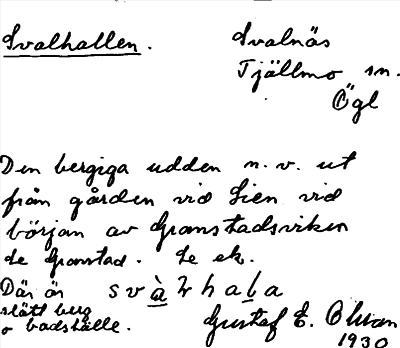 Svalhallen. Svalnäs
Tjällmo sn.
Ögl
Den bergiga udden n.v. ut
från gården vid Sien vid
början av Granstadsviken
se Granstad. Se ek.
Där är svàlhala
slätt berg
o badställe. Gustaf E. Olsson
1930